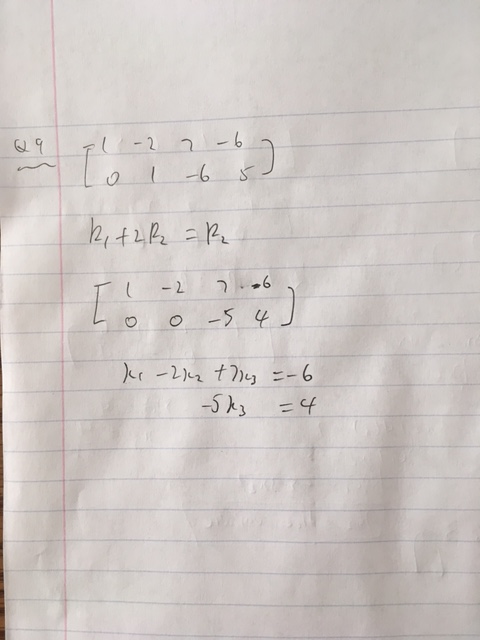 Q9 [ 1 -2 7 -6 ]
[ 0 1 -6 5 ]
R₁ + 2R₂ = R₂
[ 1 -2 7 -6 ]
[ 0 0 -5 4 ]
x₁ - 2x₂ + 7x₃ = -6
-5x₃ = 4